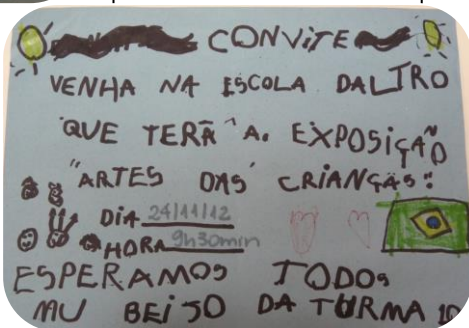 CONVITE
VENHA NA ESCOLA DALTRO
QUE TERÁ A EXPOSIÇÃO
"ARTES DAS CRIANÇAS"
DIA 24/11/12
HORA 9h30min
ESPERAMOS TODOS
MU BEIJO DA TURMA 10